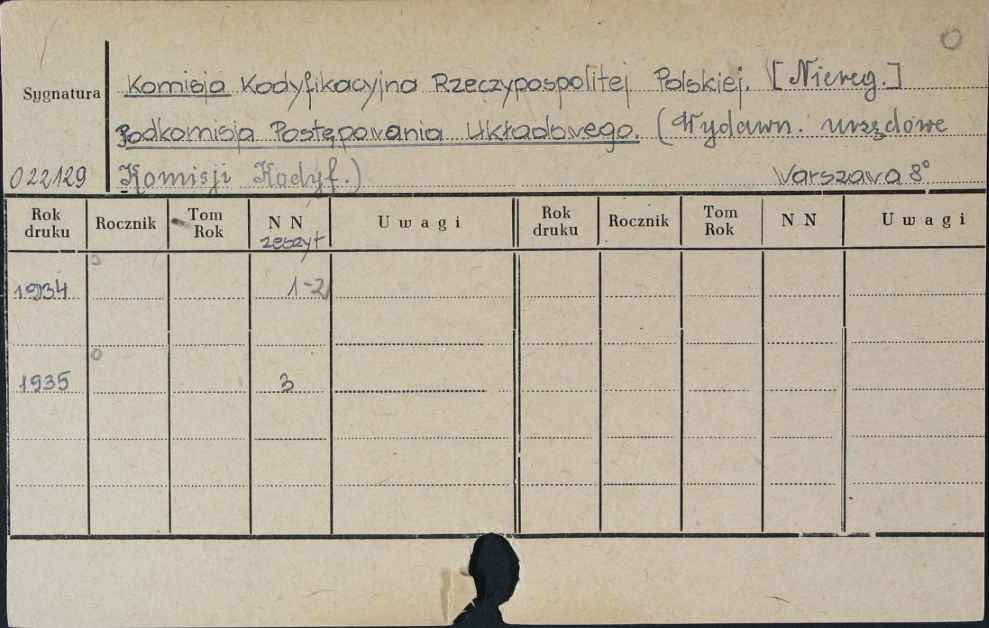 Sygnatura
Komisja Kodyfikacyjna Rzeczypospolitej Polskiej. [Niereg.]
Podkomisja Postępowania Układowego. (Wydawn. urzędowe
022129 Komisji Kodyf.) Warszawa 8°
Rok druku Rocznik Tom Rok N N zeszyt Uwagi Rok druku Rocznik Tom Rok N N Uwagi
1934 1-2
1935 3